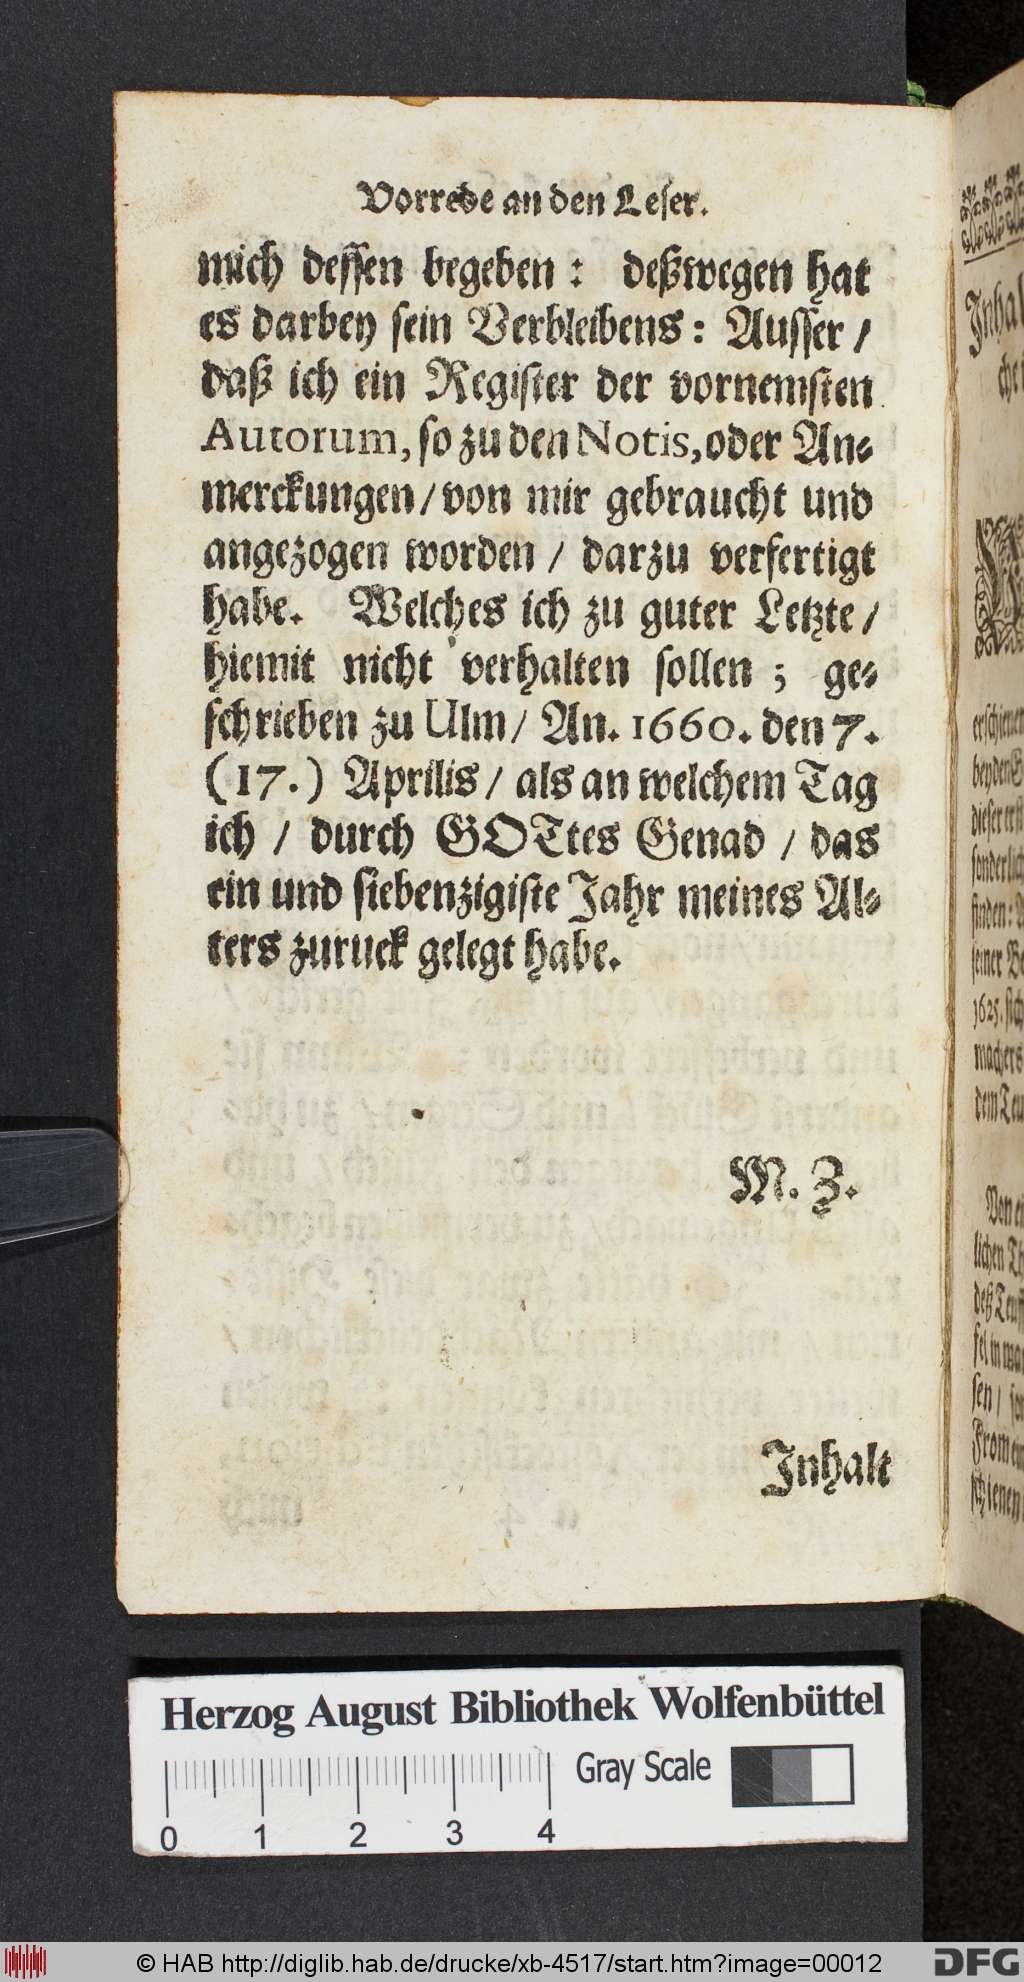 Vorrede an den Leser.
mich dessen begeben: deßwegen hat
es darbey sein Verbleibens: Ausser /
daß ich ein Register der vornemsten
Autorum, so zu den Notis, oder An-
merckungen / von mir gebraucht und
angezogen worden / darzu verfertigt
habe. Welches ich zu guter Letzte /
hiemit nicht verhalten sollen; ge-
schrieben zu Ulm / An. 1660. den 7.
(17.) Aprilis / als an welchem Tag
ich / durch GOTtes Genad / das
ein und siebenzigiste Jahr meines Al-
ters zuruck gelegt habe.
M. Z.
Inhalt
Herzog August Bibliothek Wolfenbüttel
Gray Scale
0 1 2 3 4
© HAB http://diglib.hab.de/drucke/xb-4517/start.htm?image=00012
DFG